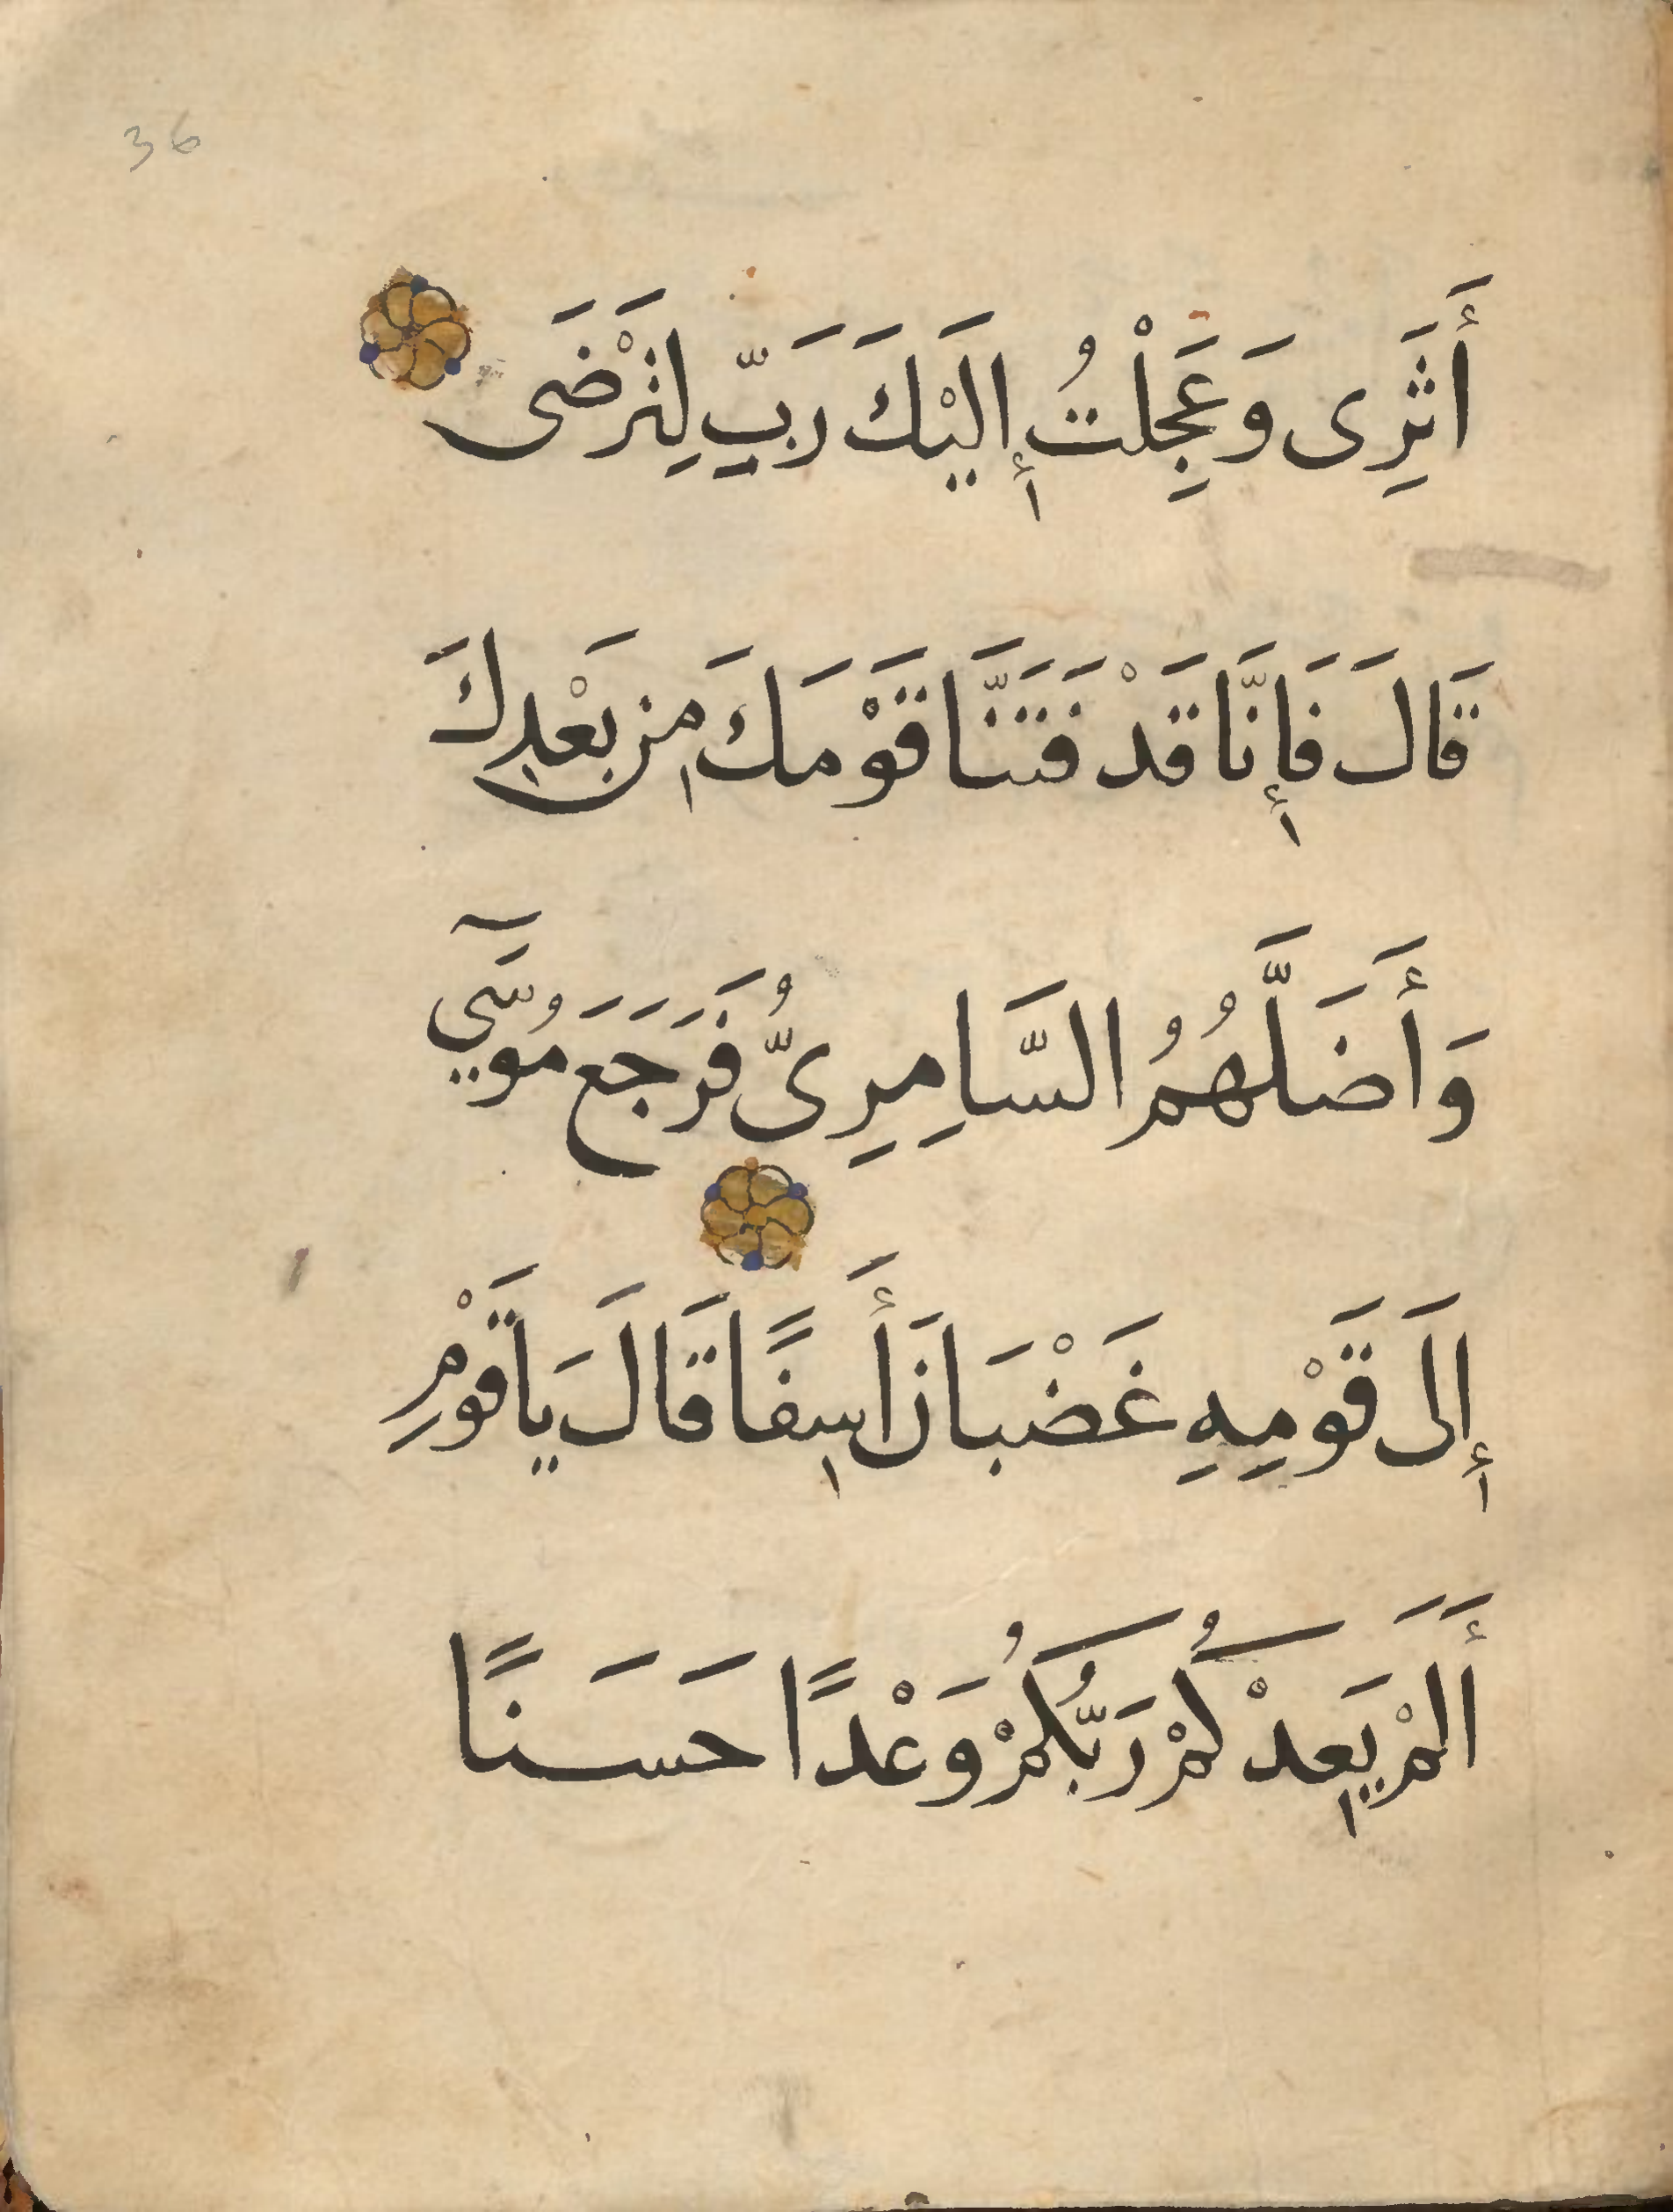 36
أَثَرِى وَعَجِلْتُ إِلَيْكَ رَبِّ لِتَرْضَى
قَالَ فَإِنَّا قَدْ فَتَنَّا قَوْمَكَ مِن بَعْدِكَ
وَأَضَلَّهُمُ السَّامِرِىُّ فَرَجَعَ مُوسَىٓ
إِلَى قَوْمِهِ غَضْبَانَ أَسِفًا قَالَ يَاقَوْمِ
أَلَمْ يَعِدْكُمْ رَبُّكُمْ وَعْدًا حَسَنًا